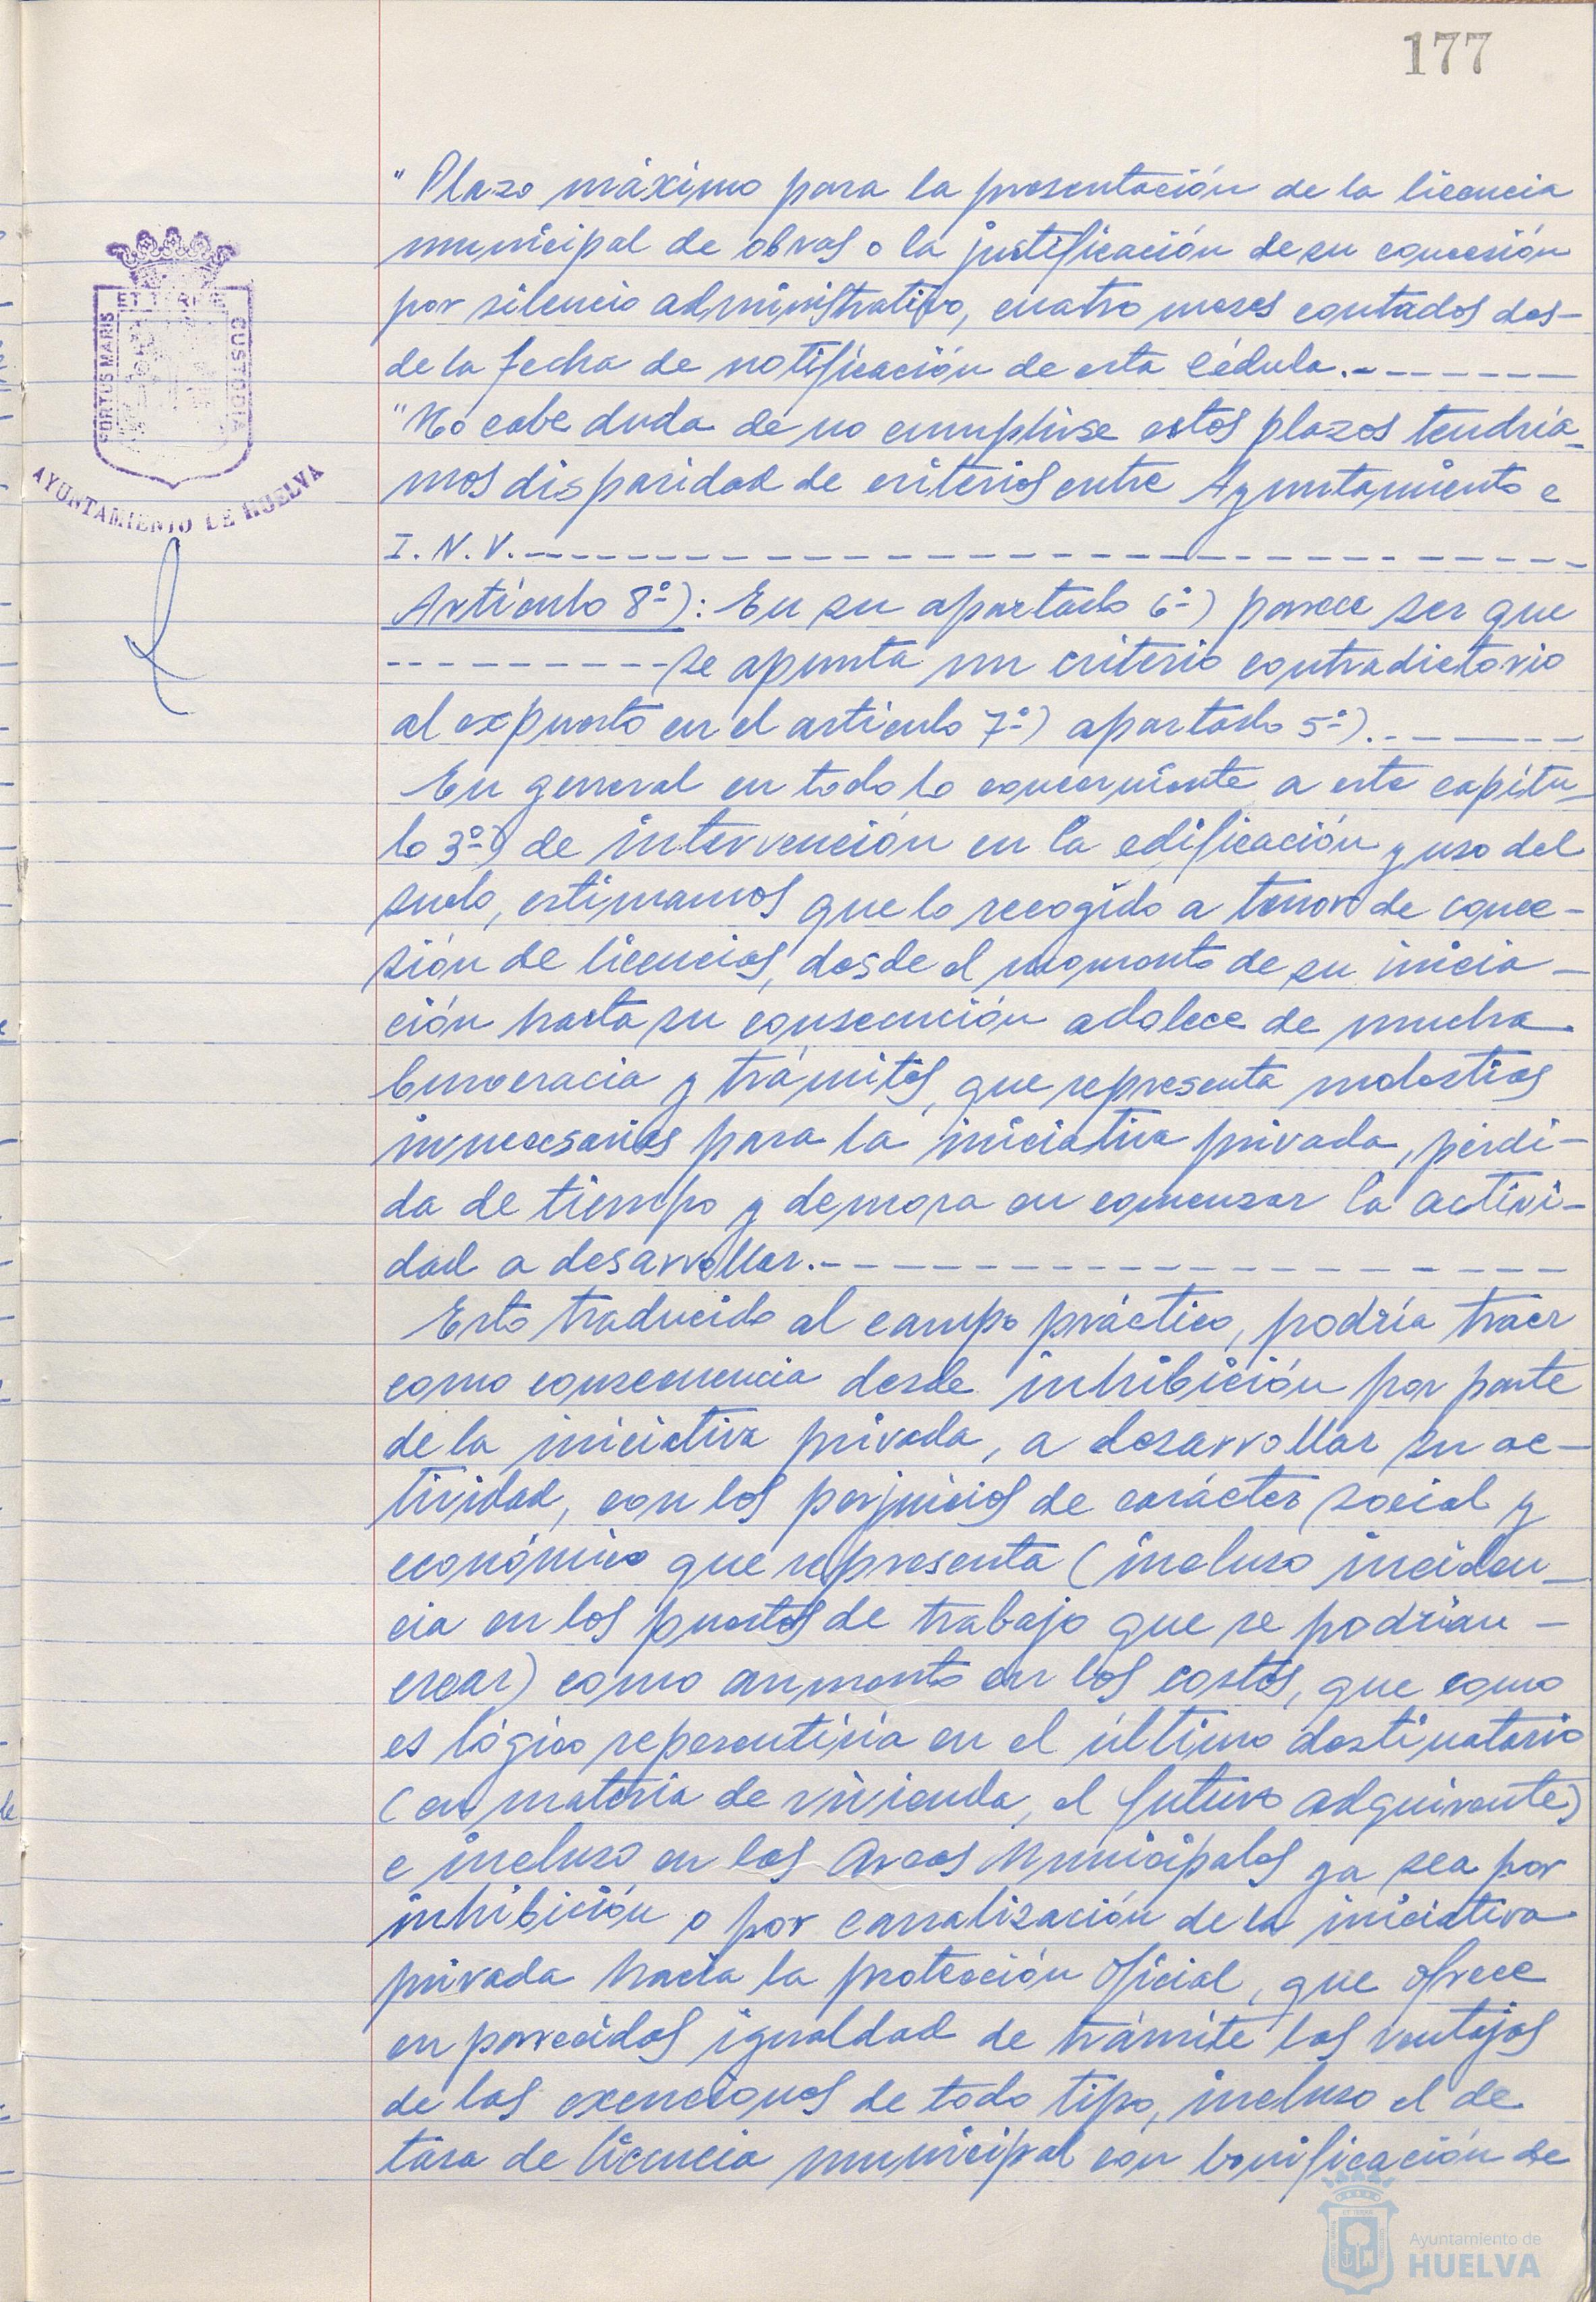 177
"Plazo máximo para la presentación de la licencia
municipal de obras o la justificación de su concesión
por silencio administrativo, cuatro meses contados des-
de la fecha de notificación de esta Cédula.--------
"No cabe duda de no cumplirse estos plazos tendría-
mos disparidad de criterios entre Ayuntamiento e
I.N.V.-----------------------
Artículo 8º): En su apartado 6º) parece ser que
----------se apunta un criterio contradictorio
al expuesto en el artículo 7º) apartado 5º).-----
En general en todo lo concerniente a este capítu-
lo 3º) de intervención en la edificación y uso del
suelo, estimamos que lo recogido a tenor de conce-
sión de licencias, desde el momento de su inicia-
ción hasta su consecución adolece de mucha
burocracia y trámites, que representa molestias
innecesarias para la iniciativa privada, pérdi-
da de tiempo y demora en comenzar la activi-
dad a desarrollar.-----------------
Esto traducido al campo práctico, podría traer
como consecuencia desde inhibición por parte
de la iniciativa privada, a desarrollar su ac-
tividad, con los perjuicios de carácter social y
económico que representa (incluso inciden-
cia en los puestos de trabajo que se podrían-
crear) como aumento en los costes, que como
es lógico repercutiría en el último destinatario
(en materia de vivienda, el futuro adquirente)
e incluso en las Arcas Municipales ya sea por
inhibición o por canalización de la iniciativa
privada hacia la protección oficial, que ofrece
en parecidas igualdad de trámite las ventajas
de las exenciones de todo tipo, incluso el de
tasa de licencia municipal con bonificación de
ET TERRAE
PORTUS MARIS
CUSTODIA
AYUNTAMIENTO DE HUELVA
Ayuntamiento de
HUELVA